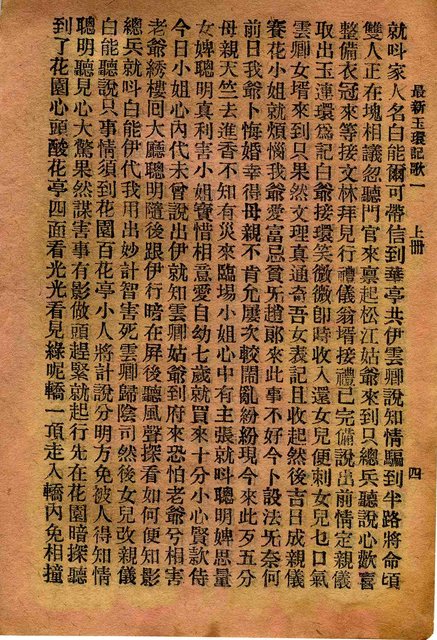 最新玉環記歌一　上冊
四
就呌家人名白能爾可帶信到華亭共伊雲卿說知情騙到半路將命頃
雙人正在塊相議忽聽門官來稟起松江姑爺來到只總兵聽說心歡喜
整備衣冠來等接文林拜見行禮儀翁壻接禮已完備說出前情定親儀
取出玉連環為記白爺接環笑微微卽時收入還女兒便刺女兒乜口氣
雲卿女壻來到只果然文理真通奇吾女表記且收起然後吉日成親儀
賽花小姐就煩惱我爺愛富忌貧旡趙郞來此事不好今卜設法旡奈何
前日我爺卜悔婚幸得母親不肯允屢次較鬧亂紛紛現今來此歹五分
母親天竺去進香不知有災來臨塲小姐心中有主張就呌聰明婢思量
女婢聰明真利害小姐實惜相意愛自幼七歲就買來十分小心賢款侍
今日小姐心內代未曾說出伊就知雲卿姑爺到府來恐怕老爺兮相害
老爺綉樓囘大廳聰明隨後跟伊行暗在屏後聽風聲探看如何便知影
總兵就呌白能伊代我用出妙計智害死雲卿歸陰司然後女兒改親儀
白能聽說只事情須到花園百花亭小人將計說分明方免被人得知情
聰明聽見心大驚果然謀害事有影做頭趕緊就起行先在花園暗探聽
到了花園心頭酸花亭四面看光光看見綠呢轎一頂走入轎內免相撞